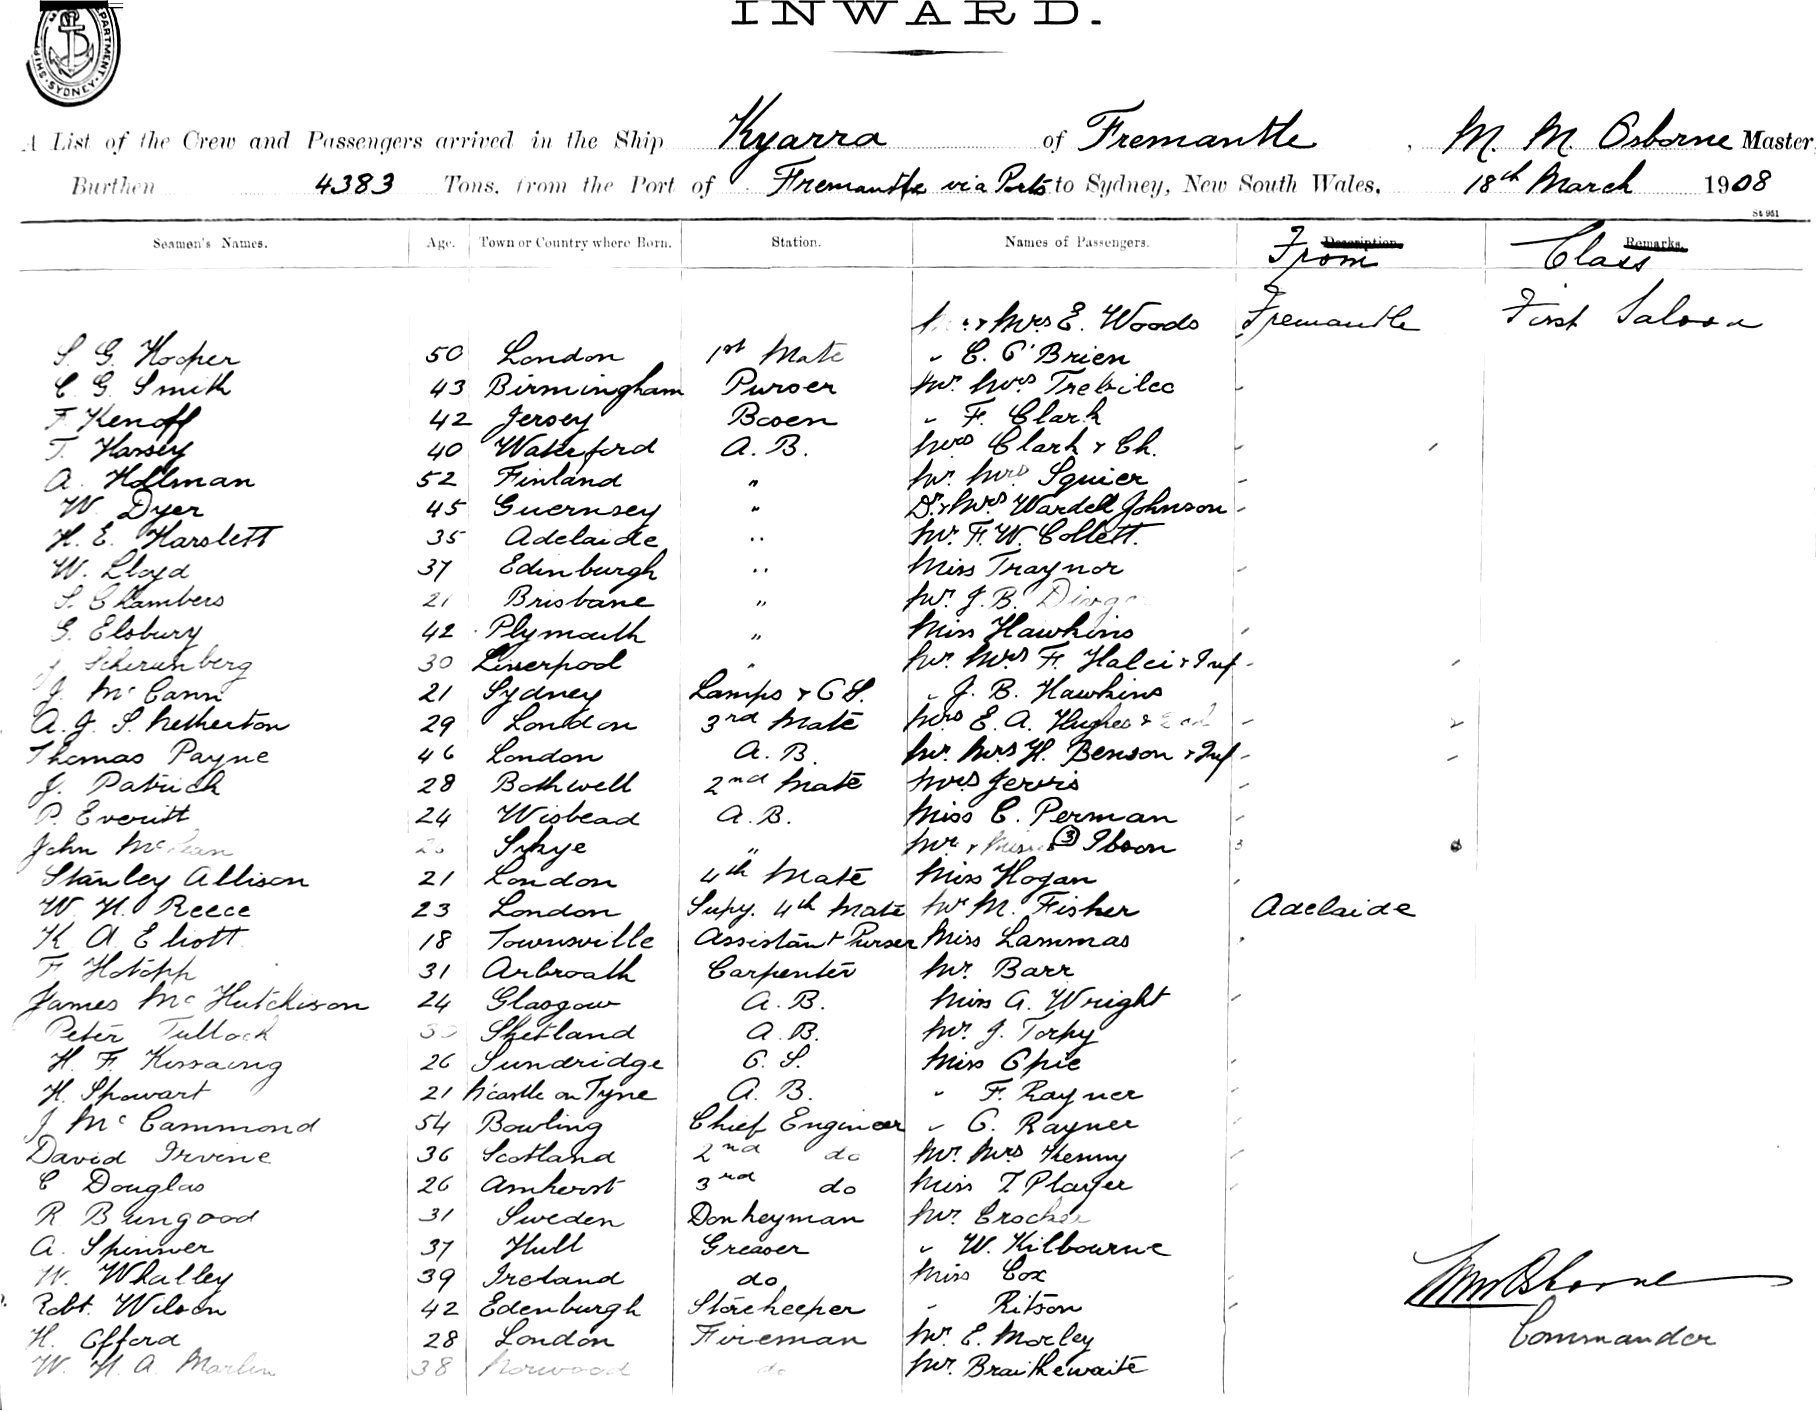 INWARD.
SHIPPING DEPARTMENT. SYDNEY
A List of the Crew and Passengers arrived in the Ship Kyarra of Fremantle, M. M. Osborne Master,
Burthen 4383 Tons, from the Port of Fremantle via Ports to Sydney, New South Wales, 18th March 1908
St 951
Seamen's Names. Age. Town or Country where Born. Station. Names of Passengers. Description From Remarks. Class
& Mrs E. Woods Fremantle First Saloon
S. G. Hooper 50 London 1st Mate " C. O'Brien
C. G. Smith 43 Birmingham Purser Mr. Mrs Trebilco
F Kenoff 42 Jersey Bosen " F. Clark
T. Harsey 40 Wateford A. B. Mrs Clark & Ch.
A. Hollman 52 Finland " Mr. Mrs Squier
W. Dyer 45 Guernsey " Dr. & Mrs Wardell Johnson
H. E. Harslett 35 Adelaide " Mr. F. W. Collett.
W. Lloyd 37 Edinburgh " Miss Traynor
S. Chambers 21 Brisbane " Mr. J. B.
G. Elsbury 42 Plymouth " Miss Hawkins
J. Scherunberg 30 Liverpool " Mr. Mrs F. Halei & Inf
J. McCann 21 Sydney Lamps & O S. " J. B. Hawkins
A. J. S. Netherton 29 London 3rd Mate Mrs E. A. Hughes &
Thomas Payne 46 London A. B. Mr. Mrs H. Benson & Inf
J. Patrick 28 Bothwell 2nd Mate Mrs Jervis
P. Everitt 24 Wisbead A. B. Miss C. Perman
John Skye " Mr & 3 Ibson
Stanley Allison 21 London 4th Mate Miss Hogan
W. H. Reece 23 London Supy. 4th Mate Mr M. Fisher Adelaide
K A Eliott 18 Townsville Assistant Purser Miss Lammas
F Hotopp 31 Arbroath Carpenter Mr. Barr
James McHutchison 24 Glasgow A. B. Miss A. Wright
Peter Tullock Shetland A. B. Mr. J. Torpy
H. F. Kissaing 26 Sundridge O. S. Miss Opie
H. Showart 21 N'castle on Tyne A. B. " F. Rayner
J McCammond 54 Bowling Chief Engineer " G. Rayner
David Irvine 36 Scotland 2nd do Mr. Mrs Kenny
C Douglas 26 Amherst 3rd do Miss I Player
R Bungood 31 Sweden Donkeyman Mr. Crocker
A. Spinner 37 Hull Greaser " W. Kilbourne
W. Whalley 39 Ireland do Miss Cox
Robt. Wilson 42 Edenburgh Storekeeper " Ritson
H. Offord 28 London Fireman Mr. E. Morley
W. H. A. Marlin 38 Norwood do Mr. Braithewaite
M M Osborne
Commander